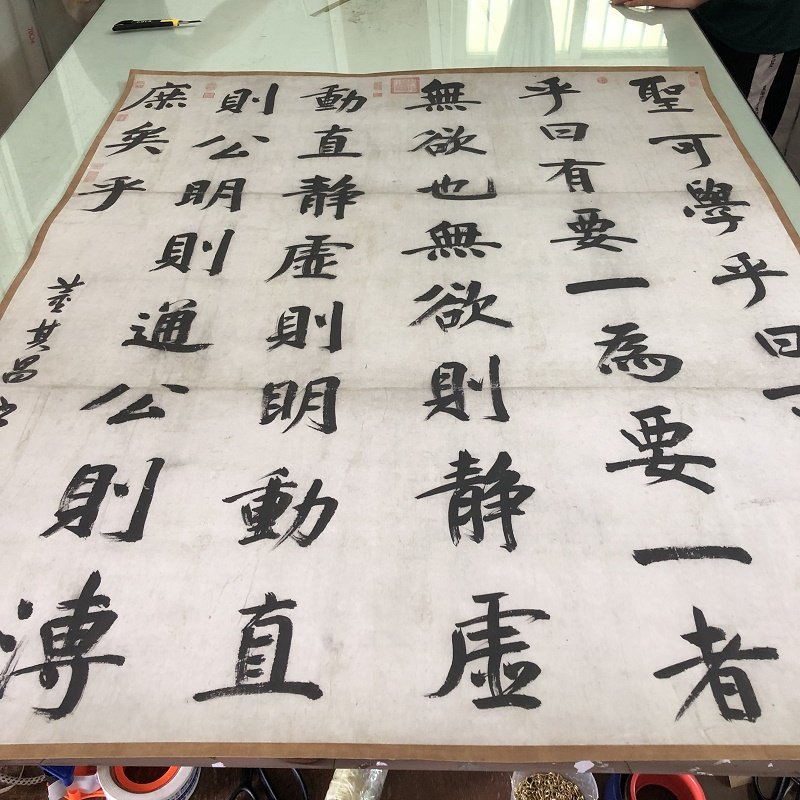 聖可學乎曰
乎曰有要一為要一者
無欲也無欲則静虚
動直静虚則明動直
則公明則通公則溥
庶矣乎
董其昌